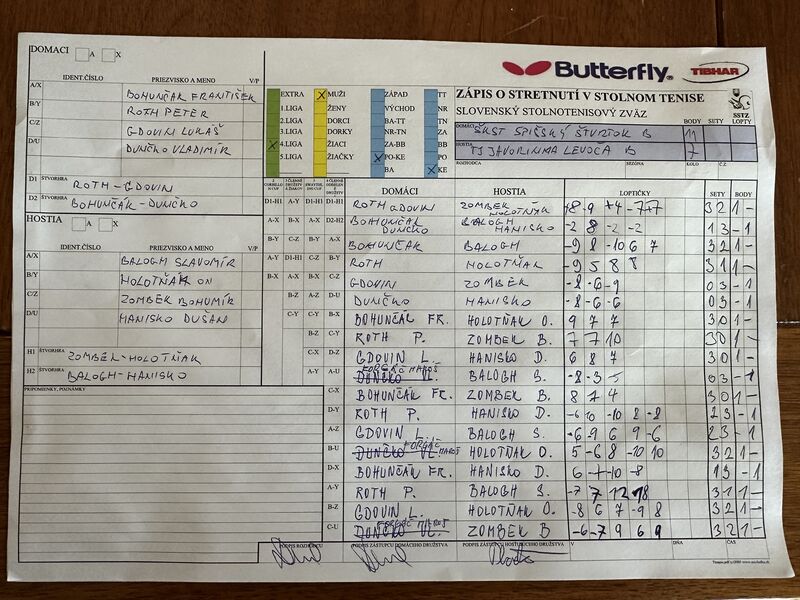 DOMACI A X
IDENT.ČÍSLO PRIEZVISKO A MENO V/P
A/X BOHUNČAK FRANTIŠEK
B/Y ROTH PETER
C/Z GDOVIN LUKÁŠ
D/U DUNČKO VLADIMÍR
D1 ŠTVORHRA ROTH-GDOVIN
D2 ŠTVORHRA BOHUNČAK-DUNČKO
HOSTIA A X
IDENT.ČÍSLO PRIEZVISKO A MENO V/P
A/X BALOGH SLAVOMÍR
B/Y HOLOTŇÁK ON
C/Z ZOMBEK BOHUMÍR
D/U HANISKO DUŠAN
H1 ŠTVORHRA ZOMBEK-HOLOTŇAK
H2 ŠTVORHRA BALOGH-HANISKO
PRIPOMIENKY, POZNÁMKY
EXTRA X MUŽI ZÁPAD TT
1.LIGA ŽENY VÝCHOD NR
2.LIGA DORCI BA-TT TN
3.LIGA DORKY NR-TN ZA
X 4.LIGA ŽIACI ZA-BB BB
5.LIGA ŽIAČKY X PO-KE PO
BA X KE
Butterfly TIBHAR
ZÁPIS O STRETNUTÍ V STOLNOM TENISE
SLOVENSKÝ STOLNOTENISOVÝ ZVÄZ
SSTZ
BODY SETY LOPTY
DOMÁCI ŠKST SPIŠSKÝ ŠTVRTOK B 11
HOSTIA TJ JAVORINKA LEVOČA B 7
ROZHODCA SEZÓNA KOLO Č.Z
DOMÁCI HOSTIA LOPTIČKY SETY BODY
D1-H1 A-Y D1-H1 D1-H1 ROTH GDOVIN ZOMBEK HOLOTŇAK 3 2 1 -
A-X B-X A-X D2-H2 BOHUNČAK DUNČKO BALOGH HANISKO -2 8 -2 -2 1 3 - 1
B-Y C-Z B-Y A-X BOHUNČAK BALOGH -9 8 -10 6 7 3 2 1 -
A-Y D1-H1 C-Z B-Y ROTH HOLOTŇAK -9 5 8 8 3 1 1 -
B-X C-X B-X C-Z GDOVIN ZOMBEK -8 -6 -9 0 3 - 1
B-Z A-Z D-U DUNČKO HANISKO -8 -6 -6 0 3 - 1
C-Y C-Y B-X BOHUNČÁK FR. HOLOTŇAK O. 9 7 7 3 0 1 -
B-Z C-Y ROTH P. ZOMBEK B. 7 7 10 3 0 1 -
C-X D-Z GDOVIN L. HANISKO D. 6 8 7 3 0 1 -
A-Y A-U DUNČKO VL. FORGÁČ MAROŠ BALOGH S. -8 -3 -5 0 3 - 1
C-X BOHUNČÁK FR. ZOMBEK B. 8 7 4 3 0 1 -
D-Y ROTH P. HANISKO D. -6 10 -10 8 -8 2 3 - 1
A-Z GDOVIN L. BALOGH S. -6 -9 6 9 -6 2 3 - 1
B-U DUNČKO VL. FORGÁČ MAROŠ HOLOTŇAK O. 5 -6 8 -10 10 3 2 1 -
D-X BOHUNČÁK FR. HANISKO D. 1 3 - 1
A-Y ROTH P. BALOGH S. -7 7 12 3 1 1 -
B-Z GDOVIN L. HOLOTŇAK O. -8 6 7 -9 8 3 2 1 -
C-U DUNČKO VL. FORGÁČ MAROŠ ZOMBEK B -6 -7 9 6 9 3 2 1 -
PODPIS ROZHODCU PODPIS ZÁSTUPCU DOMÁCEHO DRUŽSTVA PODPIS ZÁSTUPCU HOSŤUJÚCEHO DRUŽSTVA V DŇA ČAS